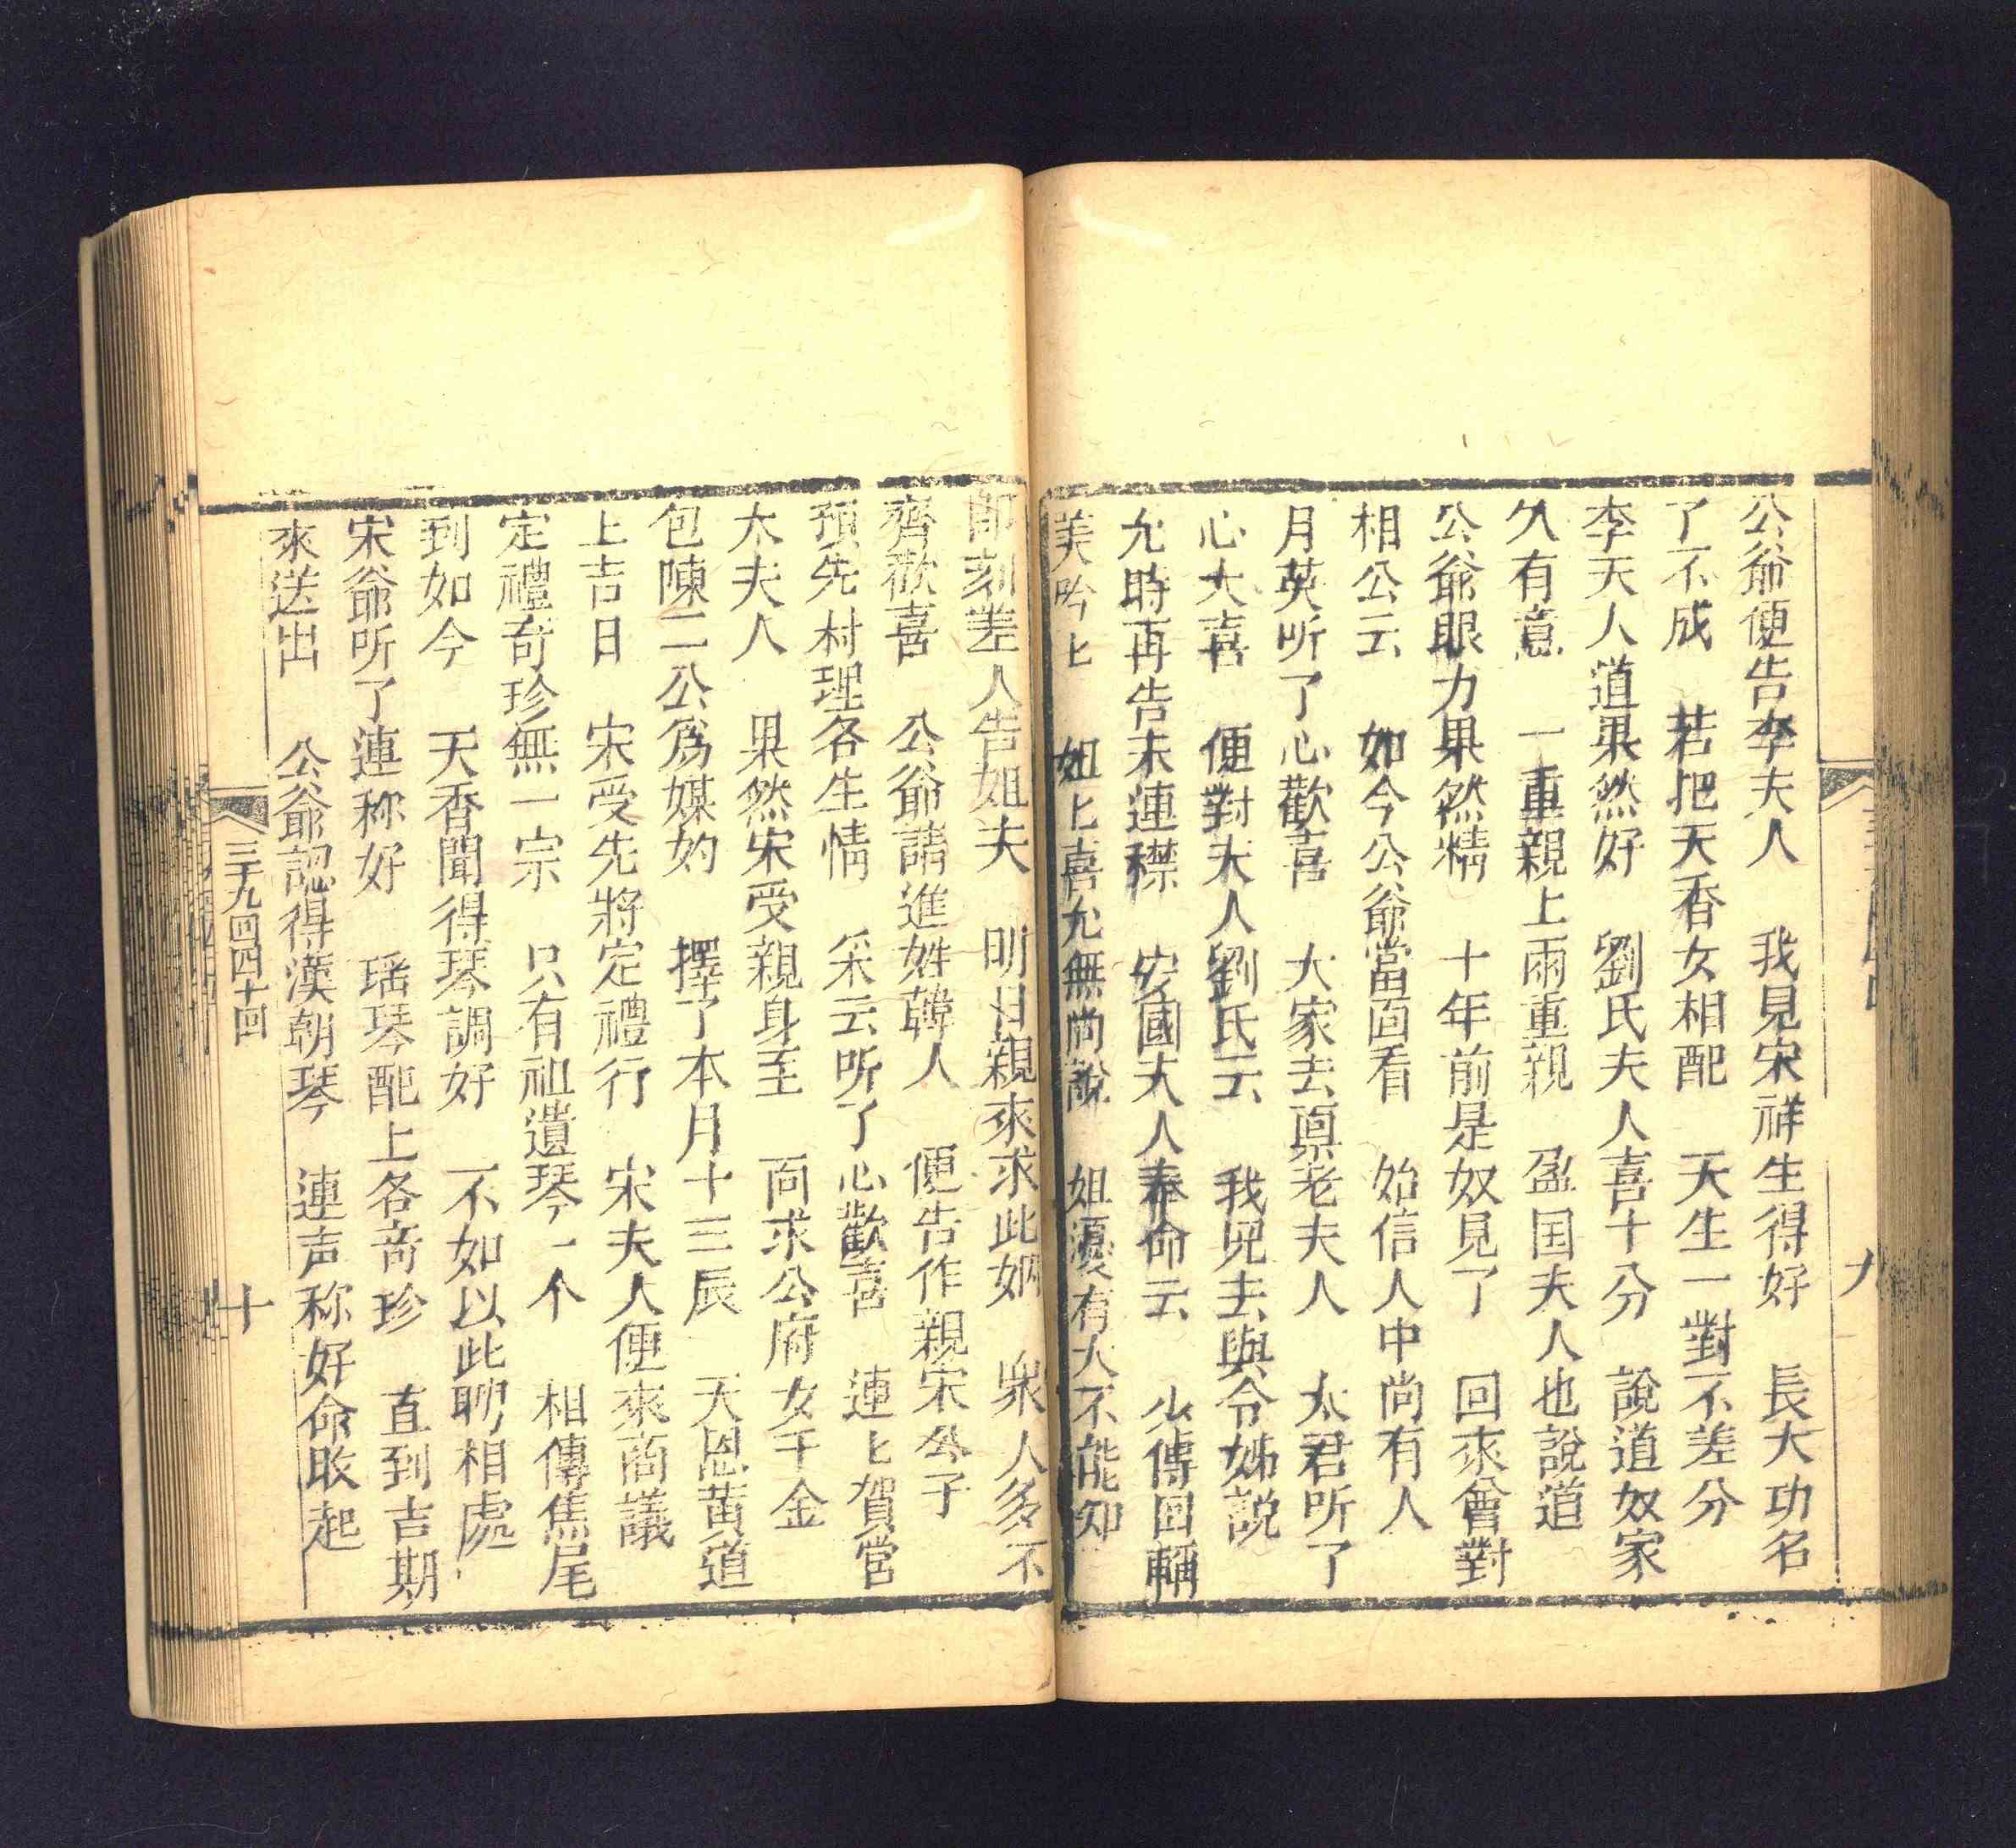 公爺便告李夫人 我見宋祥生得好 長大功名
了不成 若把天香女相配 天生一對不差分
李夫人道果然好 劉氏夫人喜十分 說道奴家
久有意 一重親上兩重親 盈囯夫人也說道
公爺眼力果然精 十年前是奴見了 回來曾對
相公云 如今公爺當面看 始信人中尚有人
月英听了心歡喜 大家去禀老夫人 太君听了
心大喜 便對夫人劉氏云 我兄去與令姊説
允時再告未連襟 安國夫人奉命云 少傅回轎
美吟〻 姐〻喜允無尚說 姐還有大不能知
即刻差人告姐夫 明日親來求此姻 衆人多不
齊歡喜 公爺請進姓韓人 便告作親宋公子
預先村理各生情 采云听了心歡喜 連〻賀當
太夫人 果然宋受親身至 而求公府女千金
包陳二公爲媒妁 擇了本月十三辰 天恩黃道
上吉日 宋受先將定禮行 宋夫人便來商議
定禮奇珍無一宗 只有祖遺琴一个 相傳焦尾
到如今 天香聞得琴調好 不如以此聘相處
宋爺听了連称好 瑶琴配上各奇珍 直到吉期
來送出 公爺認得漢朝琴 連声称好命收起
三十九回四十回
十
九